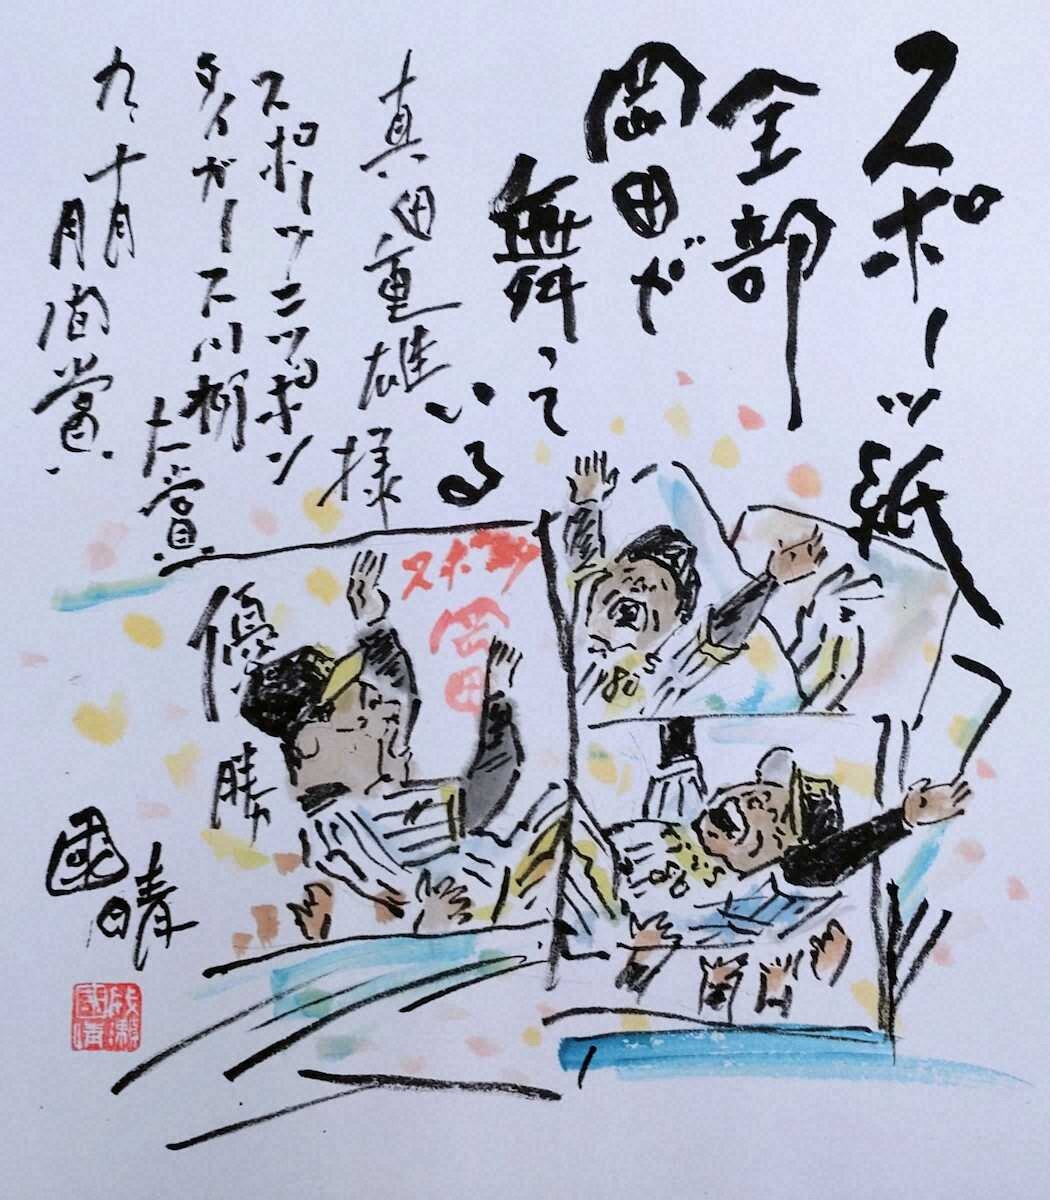 スポーツ紙
全部
岡田が
舞って
いる
真田重雄様
スポーツニッポン
タイガース川柳
大賞
九、十月
月間賞
スポーツ
岡田
優勝
80
80
國晴